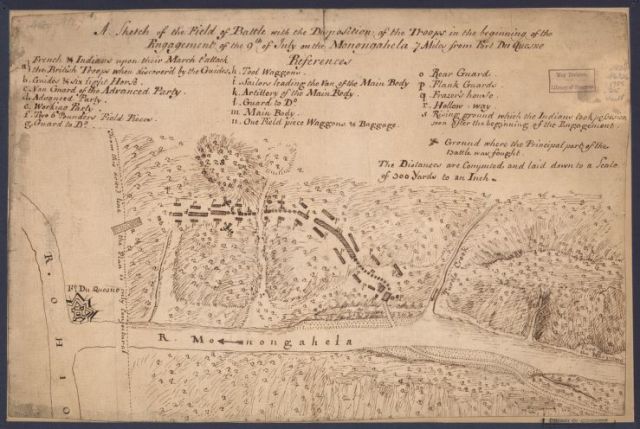 A Sketch of the Field of Battle with the Disposition of the Troops in the beginning of the
Engagement of the 9th of July on the Monongahela 7 Miles from Fort Du Quesne
References
French & Indians upon their March to attack
a the British Troops when discover'd by the Guides
b. Guides & six light Horse
c. Van Guard of the Advanced Party.
d. Advanced Party.
e. Working Party.
f. Two 6 Pounders Field Pieces
g. Guard to Do.
h. Tool Waggons.
i. Sailors leading the Van of the Main Body
k. Artillery of the Main Body.
l. Guard to Do.
m. Main Body.
n. One Field piece Waggons & Baggage.
o Rear Guard.
p. Flank Guards.
q. Frazers house.
r. Hollow way.
s Rising ground which the Indians took possession
soon after the beginning of the Engagement.
Ground where the Principal part of the
Battle was fought.
The Distances are Computed and laid down to a Scale
of 300 Yards to an Inch.
Ft. Du Quesne
R. OHIO
R. Monongahela